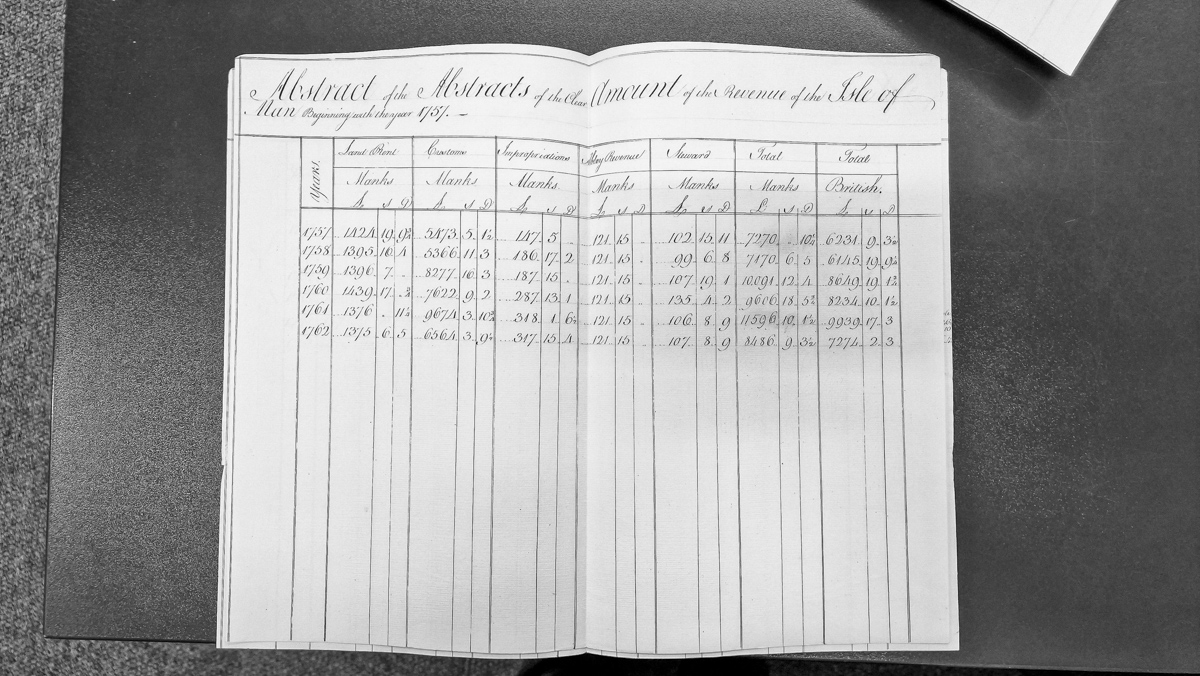 Abstract of the Abstracts of the Clear Amount of the Revenue of the Isle of
Man Beginning with the year 1757. —
Years. Land Rent Customs Impropriations Abby Revenue Steward Total Total
Manks Manks Manks Manks Manks Manks British.
£ s D £ s D £ s D £ s D £ s D £ s D £ s D
1757 1424 19 9¾ 5473 5 1½ 147 5 - 121 15 - 102 15 11 7270 - 10¼ 6231 9 3½
1758 1395 16 4 5366 11 3 186 17 2 121 15 - 99 6 8 7170 6 5 6145 19 9½
1759 1396 7 - 8277 16 3 187 15 - 121 15 - 107 19 1 10091 12 4 8649 19 1½
1760 1439 17 ¾ 7622 9 2 287 13 1 121 15 - 135 4 2 9606 18 5¾ 8234 10 1½
1761 1376 - 11½ 9674 3 10¾ 318 1 6¼ 121 15 - 106 8 9 11596 10 1½ 9939 17 3
1762 1375 6 5 6564 3 9½ 317 15 4 121 15 - 107 8 9 8486 9 3½ 7274 2 3